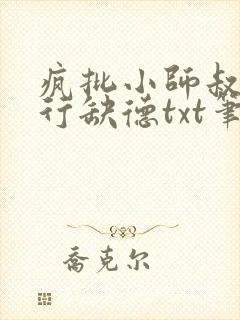 疯批小师叔
行缺德txt笔
乔克尔